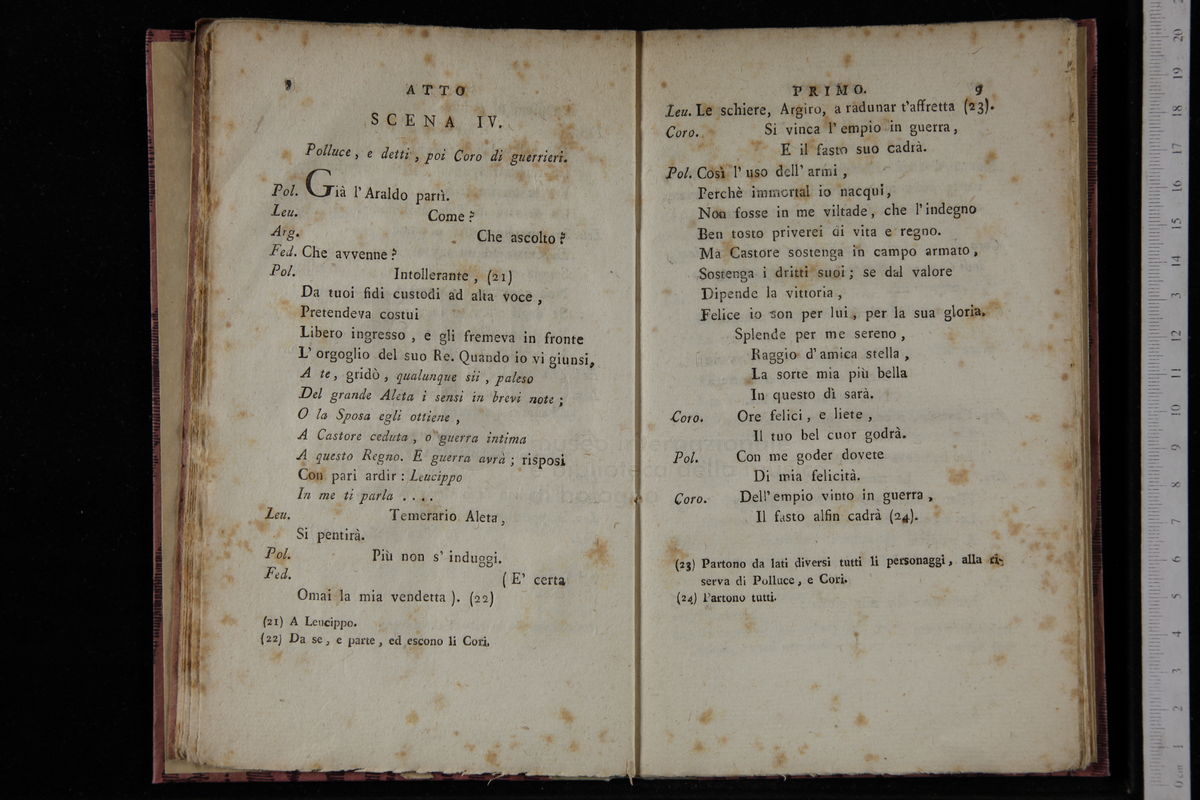 8
ATTO
SCENA IV.
Polluce, e detti, poi Coro di guerrieri.
Pol. Già l'Araldo partì.
Leu. Come?
Arg. Che ascolto?
Fed. Che avvenne?
Pol. Intollerante, (21)
Da tuoi fidi custodi ad alta voce,
Pretendeva costui
Libero ingresso, e gli fremeva in fronte
L'orgoglio del suo Re. Quando io vi giunsi,
A te, gridò, qualunque sii, paleso
Del grande Aleta i sensi in brevi note;
O la Sposa egli ottiene,
A Castore ceduta, o guerra intima
A questo Regno. E guerra avrà; risposi
Con pari ardir: Leucippo
In me ti parla ....
Leu. Temerario Aleta,
Si pentirà.
Pol. Più non s'induggi.
Fed. (E' certa
Omai la mia vendetta). (22)
(21) A Leucippo.
(22) Da se, e parte, ed escono li Cori.
PRIMO. 9
Leu. Le schiere, Argiro, a radunar t'affretta (23).
Coro. Si vinca l'empio in guerra,
E il fasto suo cadrà.
Pol. Così l'uso dell'armi,
Perchè immortal io nacqui,
Non fosse in me viltade, che l'indegno
Ben tosto priverei di vita e regno.
Ma Castore sostenga in campo armato,
Sostenga i dritti suoi; se dal valore
Dipende la vittoria,
Felice io son per lui, per la sua gloria.
Splende per me sereno,
Raggio d'amica stella,
La sorte mia più bella
In questo dì sarà.
Coro. Ore felici, e liete,
Il tuo bel cuor godrà.
Pol. Con me goder dovete
Di mia felicità.
Coro. Dell'empio vinto in guerra,
Il fasto alfin cadrà (24).
(23) Partono da lati diversi tutti li personaggi, alla ri-
serva di Polluce, e Cori.
(24) Partono tutti.